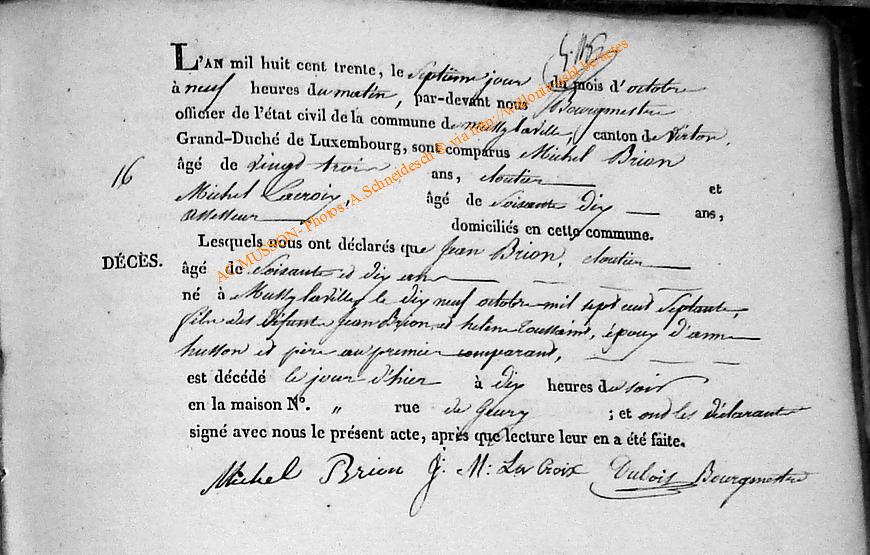 L'AN mil huit cent trente, le Septième jour du mois d'octobre
à neuf heures du matin, par-devant nous Bourgmestre
officier de l'état civil de la commune de mussy laville, canton de Virton,
Grand-Duché de Luxembourg, sont comparus Michel Brion
16
âgé de vingt trois ans, cloutier et
Michel Lacroix, âgé de Soixante dix ans,
assesseur domiciliés en cette commune.
Lesquels nous ont déclarés que Jean Brion, cloutier
DÉCÈS.
âgé de Soixante et dix ans
né à Mussy laville le dix neuf octobre mil sept cent Septante,
fils des défunts Jean Brion et helene Toussaint, époux d'anne
husson et père au premier comparant,
est décédé le jour d'hier à dix heures du soir
en la maison N°. " rue de Gevry ; et ont les déclarants
signé avec nous le présent acte, après que lecture leur en a été faite.
Michel Brion J: M: La Croix Dubois Bourgmestre
AC MUSSON- Photos: A.Schneidesch © via http://wallonia.